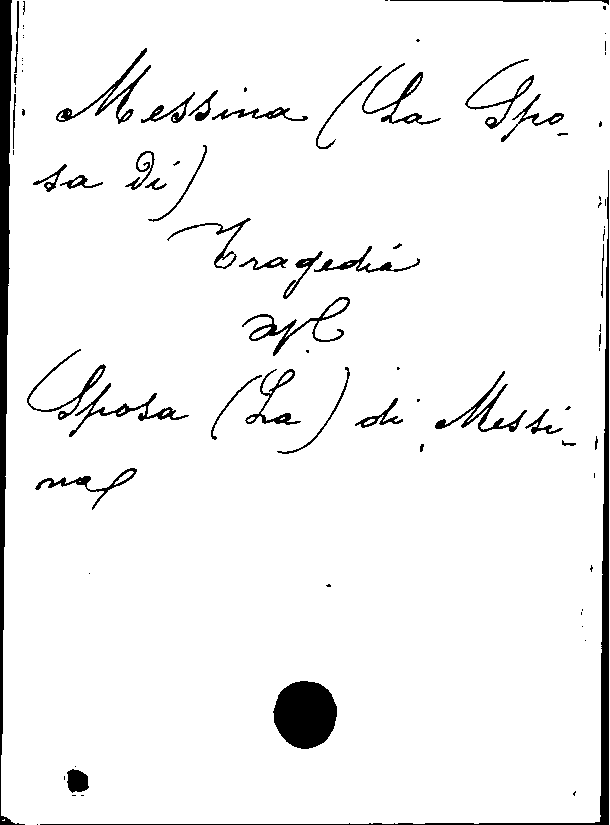 Messina (La Spo-
sa di)
Tragedia
Sposa (La) di Messi-
na